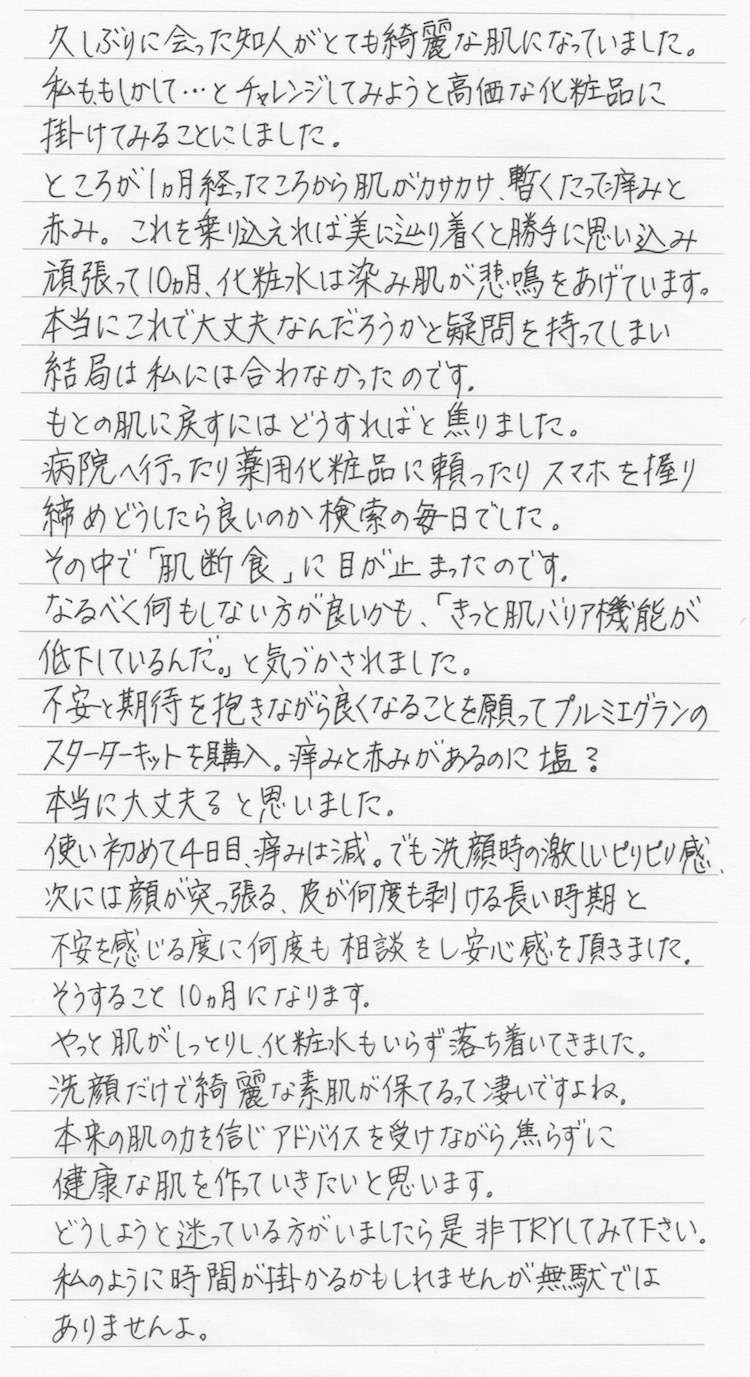 久しぶりに会った知人がとても綺麗な肌になっていました。
私も、もしかして…とチャレンジしてみようと高価な化粧品に
掛けてみることにしました。
ところが1ヵ月経ったころから肌がカサカサ、暫くたって痒みと
赤み。これを乗り込えれば美に辿り着くと勝手に思い込み
頑張って10ヵ月、化粧水は染み肌が悲鳴をあげています。
本当にこれで大丈夫なんだろうかと疑問を持ってしまい
結局は私には合わなかったのです。
もとの肌に戻すにはどうすればと焦りました。
病院へ行ったり薬用化粧品に頼ったりスマホを握り
締めどうしたら良いのか検索の毎日でした。
その中で「肌断食」に目が止まったのです。
なるべく何もしない方が良いかも、「きっと肌バリア機能が
低下しているんだ。」と気づかされました。
不安と期待を抱きながら良くなることを願ってプルミエグランの
スターターキットを購入。痒みと赤みがあるのに塩?
本当に大丈夫?と思いました。
使い初めて4日目、痒みは減。でも洗顔時の激しいピリピリ感、
次には顔が突っ張る、皮が何度も剥ける長い時期と
不安を感じる度に何度も相談をし安心感を頂きました。
そうすること10ヵ月になります。
やっと肌がしっとりし、化粧水もいらず落ち着いてきました。
洗顔だけで綺麗な素肌が保てるって凄いですよね。
本来の肌の力を信じアドバイスを受けながら焦らずに
健康な肌を作っていきたいと思います。
どうしようと迷っている方がいましたら是非TRYしてみて下さい。
私のように時間が掛かるかもしれませんが無駄では
ありませんよ。